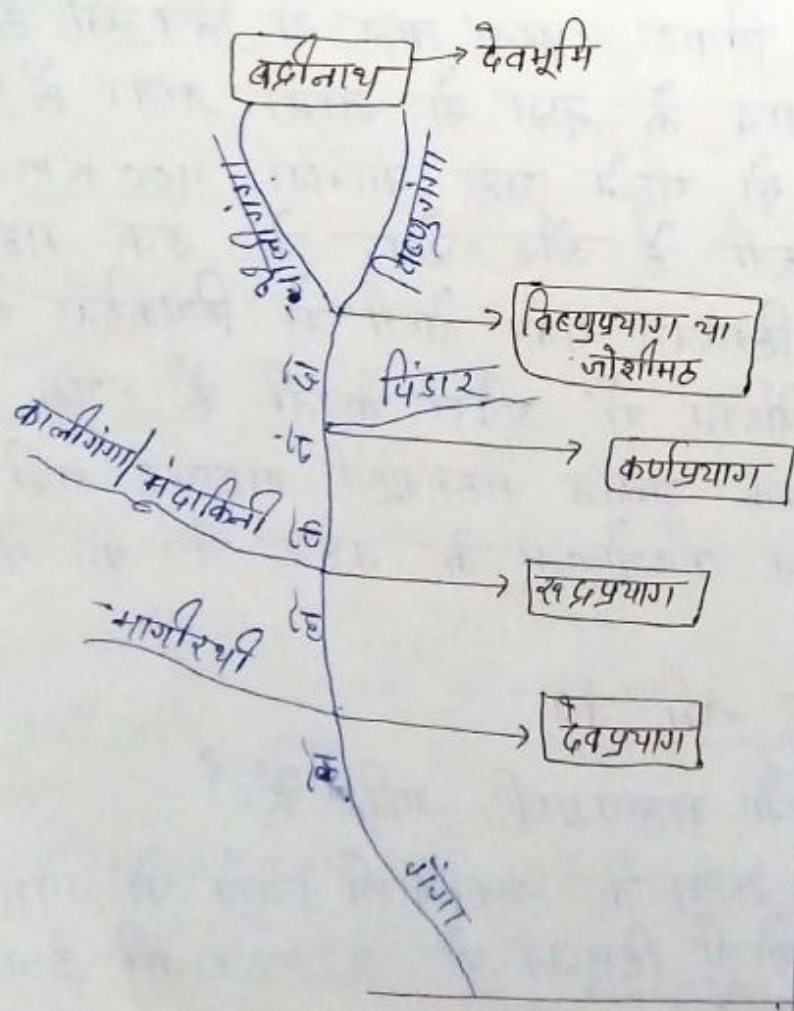 बद्रीनाथ → देवभूमि
धौलीगंगा
विष्णुगंगा
विष्णुप्रयाग या
जोशीमठ
पिंडार
कर्णप्रयाग
कालीगंगा/मंदाकिनी
रुद्रप्रयाग
भागीरथी
देवप्रयाग
गंगा